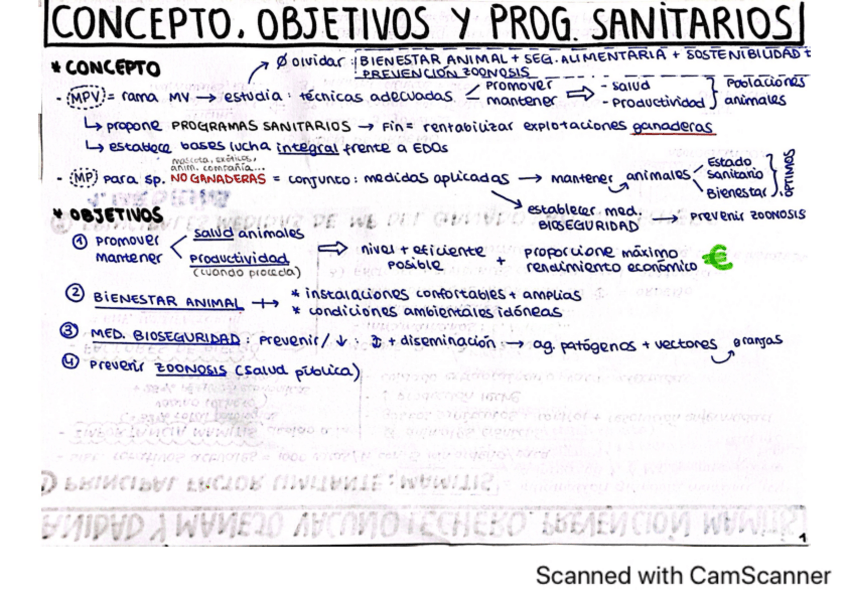 CONCEPTO, OBJETIVOS Y PROG. SANITARIOS
* CONCEPTO
Ø olvidar: BIENESTAR ANIMAL + SEG. ALIMENTARIA + SOSTENIBILIDAD +
PREVENCIÓN ZOONOSIS
- (MPV) = rama MV → estudia: técnicas adecuadas < promover mantener ⇒ - salud - Productividad } Poblaciones animales
↳ propone PROGRAMAS SANITARIOS → Fin = rentabilizar explotaciones ganaderas
↳ establece bases lucha integral frente a EDOs
mascota, exóticos,
anim. compañía...
- (MP) para sp. NO GANADERAS = conjunto: medidas aplicadas → mantener animales < Estado Sanitario Bienestar } ÓPTIMOS
→ establecer med. BIOSEGURIDAD → Prevenir ZOONOSIS
* OBJETIVOS
① promover mantener < salud animales Productividad (cuando proceda) ⇒ nivel + eficiente posible + proporcione máximo rendimiento económico €
② BIENESTAR ANIMAL → * instalaciones confortables + amplias
* condiciones ambientales idóneas
③ MED. BIOSEGURIDAD: prevenir/↓: I + diseminación → ag. patógenos + vectores granjas
④ Prevenir ZOONOSIS (salud pública)
D PRINCIPAL FACTOR LIMITANTE: MAMITIS
ANIDAD Y MANEJO VACUNO LECHERO. PREVENCIÓN MAMITIS
1
Scanned with CamScanner